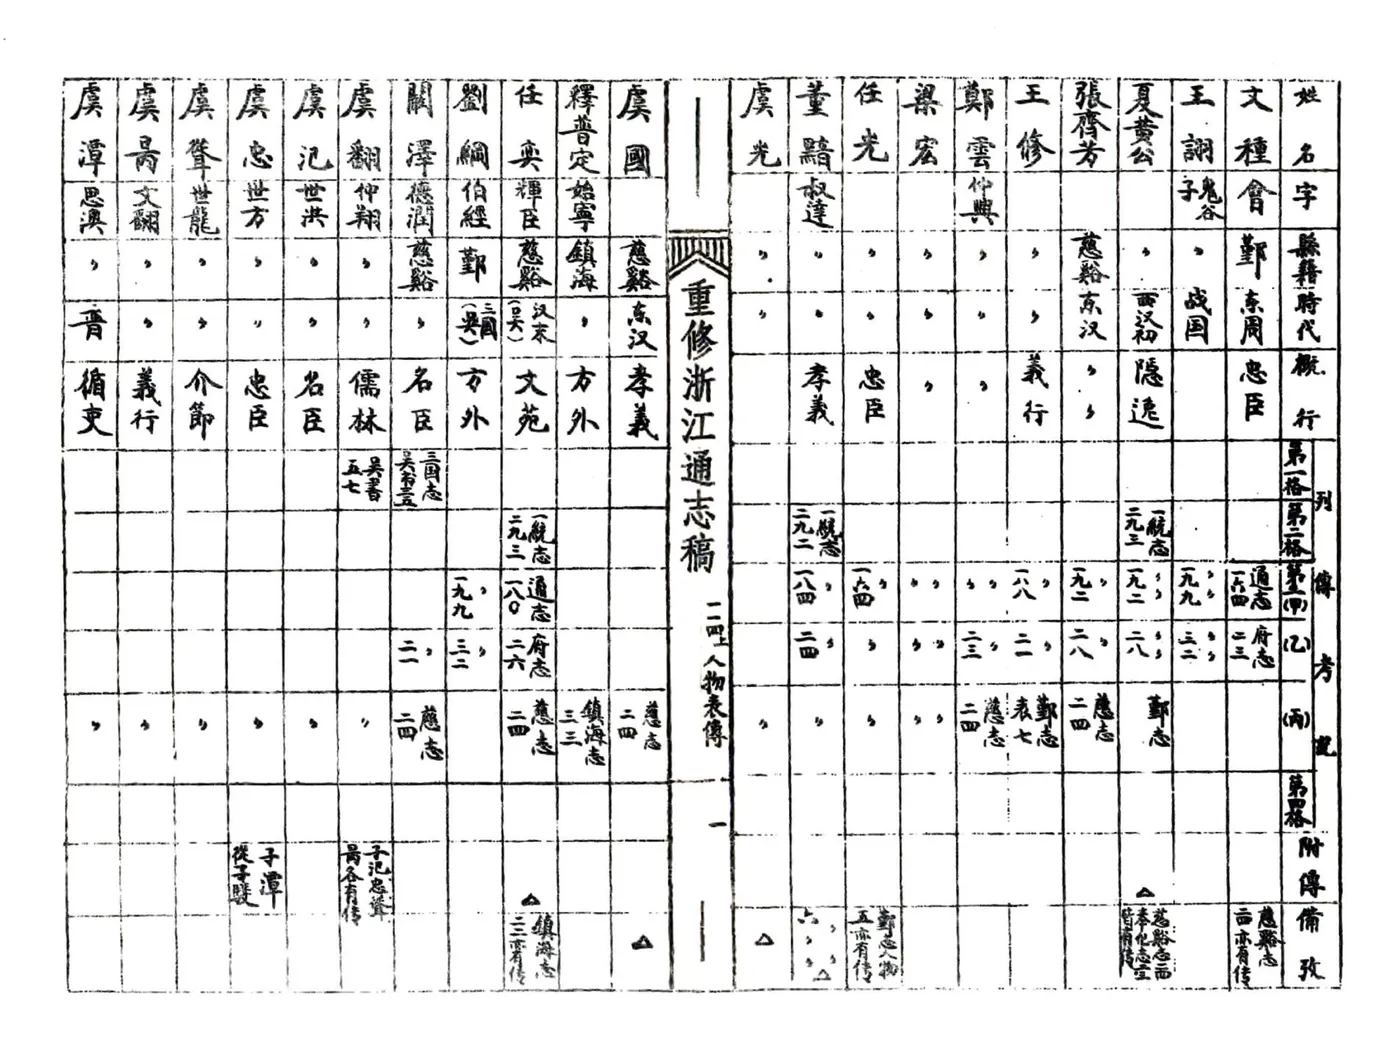 姓名 字 縣籍 時代 概行 列傳考 第一格 第二格 (甲) (乙) (丙) 第四格 附傳 備攷
文種 會 鄞 东周 忠臣 通志 一六四 府志 二三 慈谿志 亦有传
王詡 鬼谷子 〃 战国 〃〃 一九九 〃〃 三二
夏黄公 〃 西汉初 隱逸 一統志 二九三 〃〃 一九二 〃〃 二八 鄞志 △
張齊芳 慈谿 东汉 〃〃 〃 一九二 〃 二八 慈志 二四
王修 〃 〃 義行 〃 一八八 〃 二一 鄞志 表七
鄭雲 仲興 〃 〃 〃 〃〃 〃 二三 慈志 二四
梁宏 〃 〃 〃 〃〃 〃〃 〃〃
任光 〃 〃 忠臣 〃 一六四 〃 〃 鄞志人物 五亦有传
董黯 叔達 〃 〃 孝義 一統志 二九二 〃 一八四 〃 二四 〃 〃〃 六〃 △
虞光 〃 〃 〃 △
重修浙江通志稿 二四上 人物表傳 一
虞國 慈谿 东汉 孝義 慈志 二四 △
釋普定 始寧 鎮海 〃 方外 鎮海志 三三
任奕 輝臣 慈谿 汉末 文苑 一統志 二九三 通志 一八〇 府志 二六 慈志 二四 △ 鎮海志 二三亦有传
劉綱 伯經 鄞 三國(吳) 方外 〃 一九九 〃 三二
闞澤 德潤 慈谿 〃 名臣 三国志 吴书 〃 二一 慈志 二四
虞翻 仲翔 〃 〃 儒林 吴書 五七 〃 子汜忠聳昺各有传
虞汜 世洪 〃 〃 名臣 〃
虞忠 世方 〃 〃 忠臣 〃 子潭
虞聳 世龍 〃 〃 介節 〃
虞昺 文翻 〃 〃 義行 〃
虞潭 思澳 〃 晋 循吏 〃